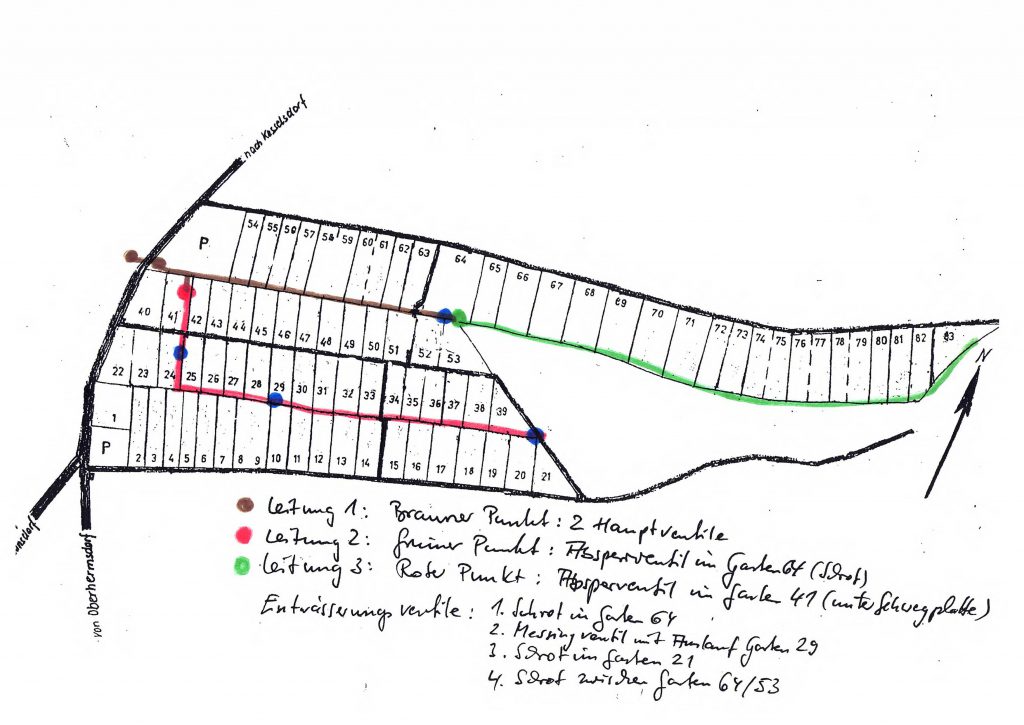 nach Kesselsdorf
P
54 55 56 57 58 59 60 61 62 63 64 65 66 67 68 69 70 71 72 73 74 75 76 77 78 79 80 81 82 83
40 41 42 43 44 45 46 47 48 49 50 51 52 53
N
22 23 24 25 26 27 28 29 30 31 32 33 34 35 36 37 38 39
1
P
2 3 4 5 6 7 8 9 10 11 12 13 14 15 16 17 18 19 20 21
von Oberhermsdorf
Leitung 1: Brauner Punkt: 2 Hauptventile
Leitung 2: grüner Punkt: Absperrventil im Garten 64 (Schrot)
Leitung 3: Roter Punkt: Absperventil im Garten 41 (unter Schwegplatte)
Entwässerungsventile: 1. Schrot in Garten 64
2. Messingventil mit Auslauf Garten 29
3. Schrot im Garten 21
4. Schrot zwischen Garten 64/53